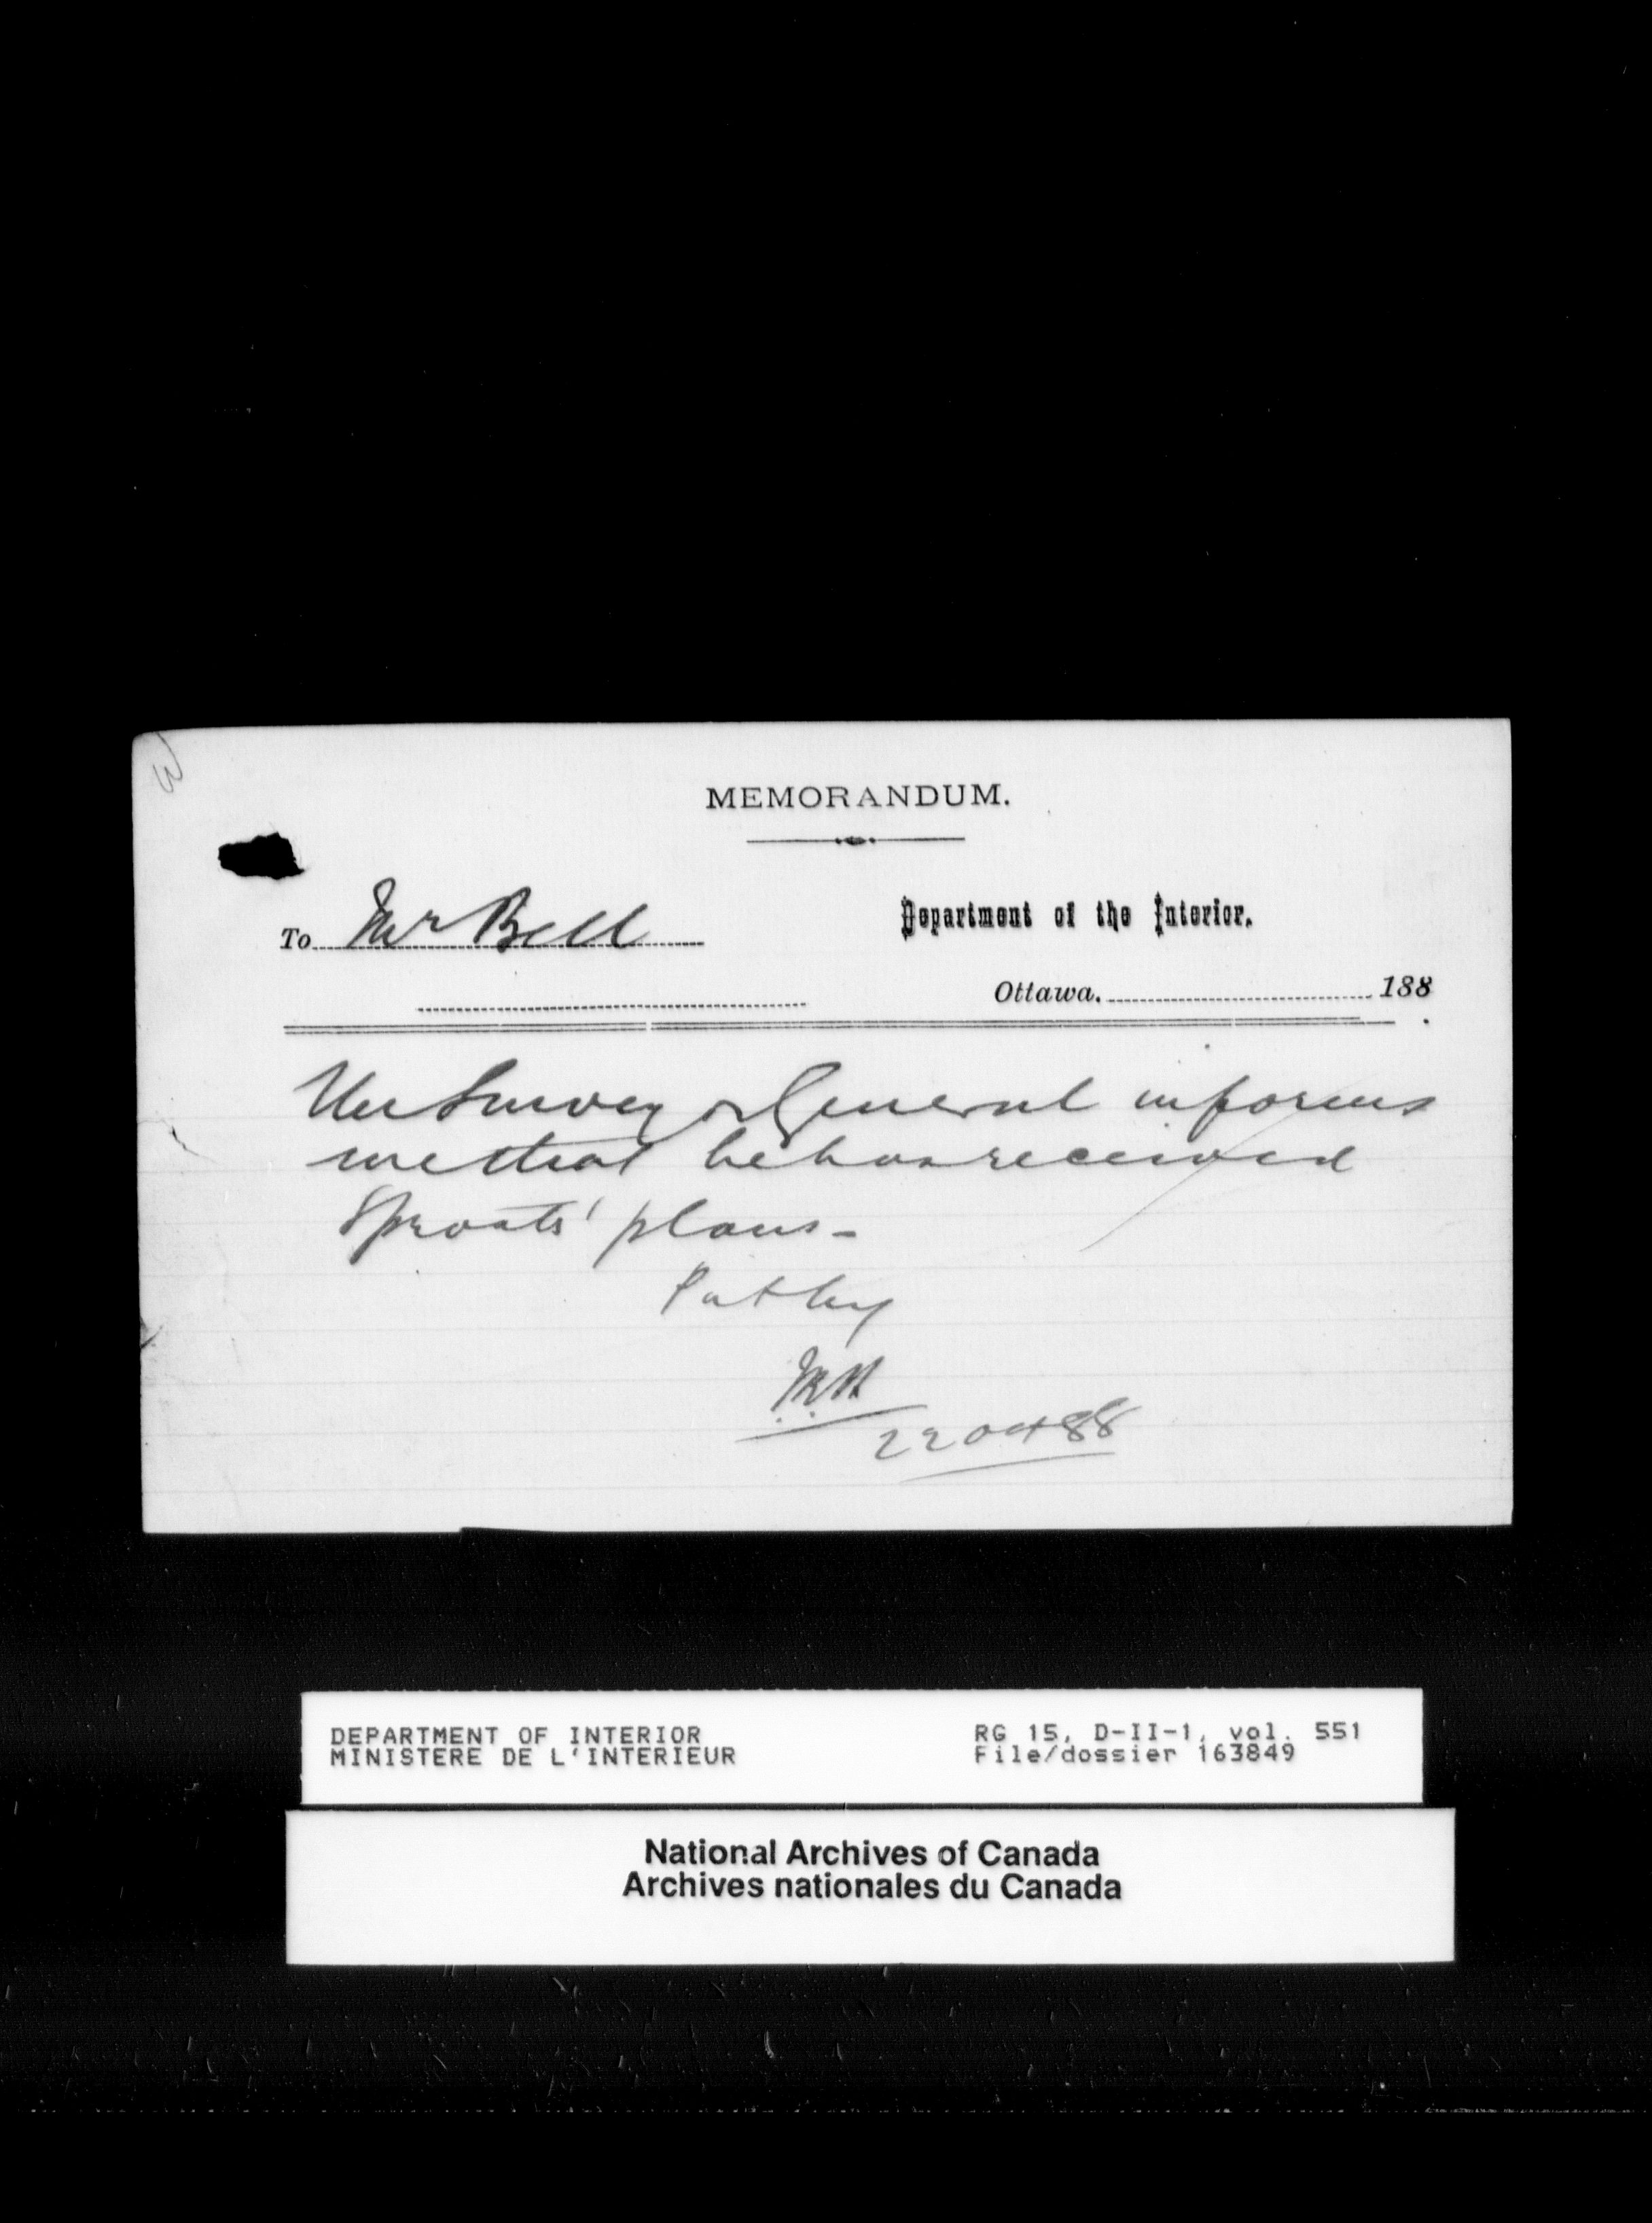 MEMORANDUM.
To Mr Bell
Department of the Interior.
Ottawa. 188
The Surveyor General informs
me that he has received
Sproats' plans -
22 Oct 88
DEPARTMENT OF INTERIOR
MINISTERE DE L'INTERIEUR
RG 15, D-II-1, vol. 551
File/dossier 163849
National Archives of Canada
Archives nationales du Canada